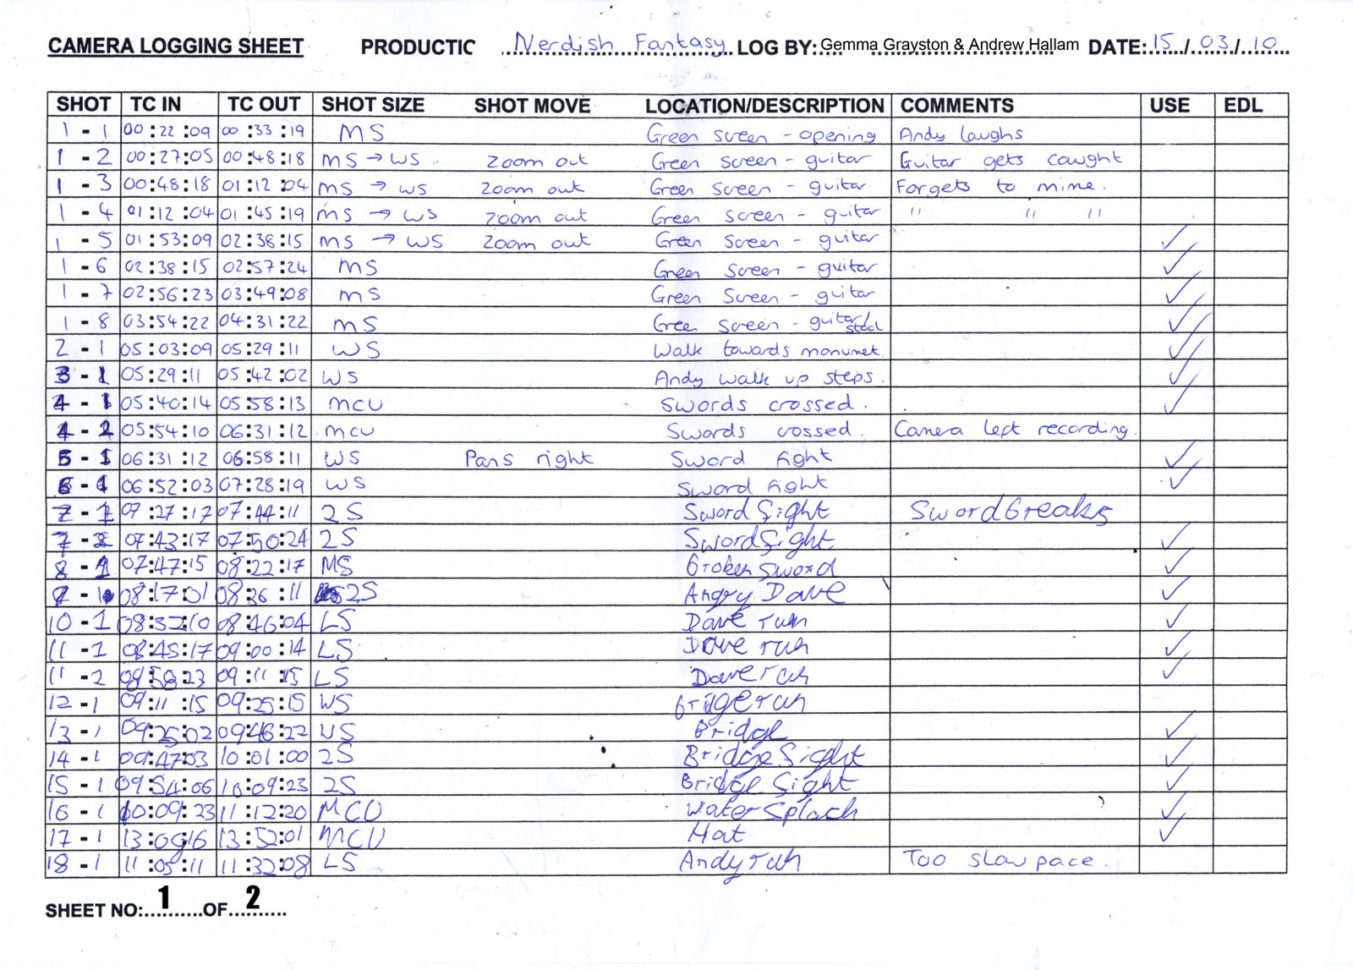 CAMERA LOGGING SHEET PRODUCTIC Nerdish Fantasy LOG BY: Gemma Grayston & Andrew Hallam DATE: 15/03/10
SHOT TC IN TC OUT SHOT SIZE SHOT MOVE LOCATION/DESCRIPTION COMMENTS USE EDL
1 - 1 00:22:09 00:33:19 MS Green screen - opening Andy laughs
1 - 2 00:27:05 00:48:18 MS → WS zoom out Green screen - guitar Guitar gets caught
1 - 3 00:48:18 01:12:04 MS → WS zoom out Green screen - guitar Forgets to mime.
1 - 4 01:12:04 01:45:19 MS → WS zoom out Green screen - guitar " " "
1 - 5 01:53:09 02:38:15 MS → WS zoom out Green screen - guitar ✓
1 - 6 02:38:15 02:57:24 MS Green screen - guitar ✓
1 - 7 02:56:23 03:49:08 MS Green screen - guitar ✓
1 - 8 03:54:22 04:31:22 MS Green screen - guitar/ ✓
2 - 1 05:03:09 05:29:11 WS Walk towards monumet ✓
3 - 1 05:29:11 05:42:02 WS Andy walk up steps. ✓
4 - 1 05:40:14 05:58:13 MCU Swords crossed. ✓
4 - 2 05:54:10 06:31:12 MCU Swords crossed. Camera left recording.
5 - 1 06:31:12 06:58:11 WS Pans right Sword fight ✓
6 - 1 06:52:03 07:28:19 WS Sword fight ✓
7 - 1 07:27:17 07:44:11 2S Sword fight Sword breaks
7 - 2 07:43:17 07:50:24 2S Sword fight ✓
8 - 1 07:47:15 08:22:17 MS broken sword ✓
9 - 1 08:17:01 08:36:11 2S Angry Dave ✓
10 - 1 08:32:10 08:46:04 LS Dave run ✓
11 - 1 08:45:17 09:00:14 LS Dave run ✓
11 - 2 08:58:23 09:11:15 LS Dave run ✓
12 - 1 09:11:15 09:25:15 WS bridge run
13 - 1 09:25:02 09:48:22 WS Bridge ✓
14 - 1 09:47:03 10:01:00 2S Bridge fight ✓
15 - 1 09:54:06 10:09:23 2S Bridge fight ✓
16 - 1 10:09:23 11:12:20 MCU Water Splach ✓
17 - 1 13:09:16 13:52:01 MCU Hat ✓
18 - 1 11:05:11 11:32:08 LS Andy run Too slow pace.
SHEET NO: 1 OF 2